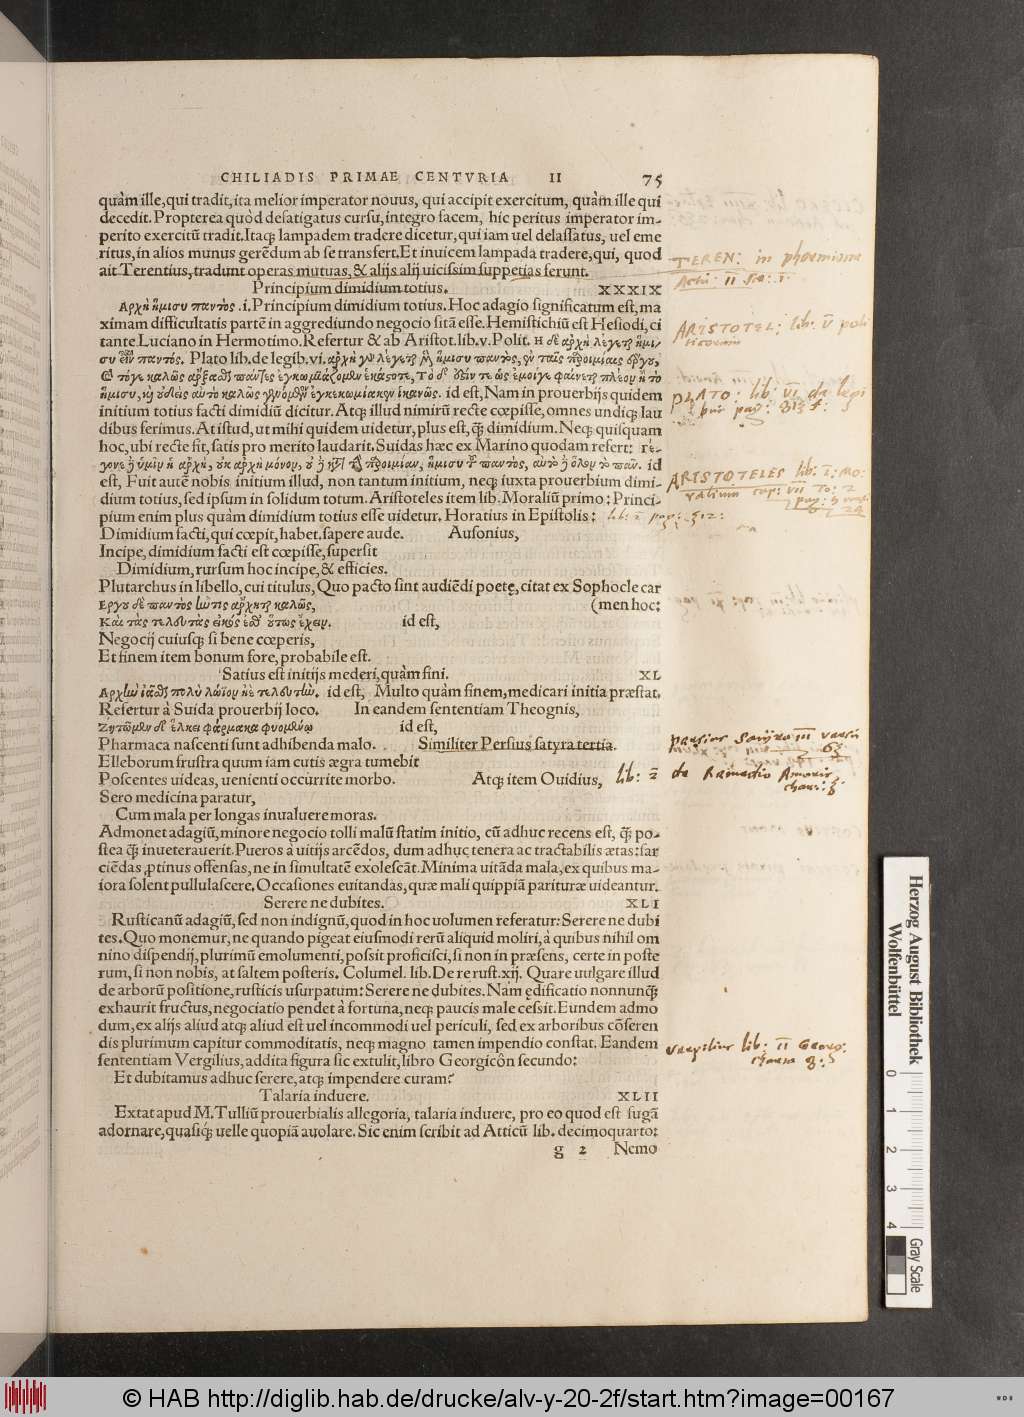 CHILIADIS PRIMAE CENTVRIA II 75
quàm ille, qui tradit, ita melior imperator nouus, qui accipit exercitum, quàm ille qui
decedit. Propterea quòd defatigatus cursu, integro facem, hic peritus imperator im-
perito exercitũ tradit. Itaq; lampadem tradere dicetur, qui iam uel delassatus, uel eme
ritus, in alios munus gerẽdum ab se transfert. Et inuicem lampada tradere, qui, quod
ait Terentius, tradunt operas mutuas, & alijs alij uicissim suppetias ferunt.
TEREN: in phormione
Actu: II Sce: I
Principium dimidium totius. XXXIX
Αρχὴ ἥμισυ παντὸς .i. Principium dimidium totius. Hoc adagio significatum est, ma
ximam difficultatis partẽ in aggrediundo negocio sitã esse. Hemistichiũ est Hesiodi, ci
tante Luciano in Hermotimo. Refertur & ab Aristot. lib. v. Polit. Η δὲ ἀρχὴ λέγεται ἥμι-
ARISTOTEL: lib: V poli
ticorum
συ εἶναι παντός. Plato lib. de legib. vi. ἀρχὴ γὰρ λέγεται μὲν ἥμισυ παντὸς, ἐν ταῖς παροιμίαις ἔργου,
καὶ τόγε καλῶς ἄρξασθαι πάντες ἐγκωμιάζομεν ἑκάσοτε, Τὸ δὲ ἐστίν τε ὡς ἐμοίγε φαίνεται πλέον ἢ τὸ
ἥμισυ, καὶ οὐδεὶς αὐτὸ καλῶς γενόμενον ἐγκεκωμίακεν ἱκανῶς. id est, Nam in prouerbijs quidem
PLATO: lib: VI de legi
bus pag: 813 f:
initium totius facti dimidiũ dicitur. Atq; illud nimirũ recte cœpisse, omnes undiq; lau
dibus ferimus. At istud, ut mihi quidem uidetur, plus est, q̃ dimidium. Neq; quisquam
hoc, ubi recte fit, satis pro merito laudarit. Suidas hæc ex Marino quodam refert: γέ-
γονε γ̓ ὑμῖν ἡ ἀρχὴ, οὐκ ἀρχὴ μόνον, οὐ γ̓ κατὰ τὴν παροιμίαν, ἥμισυ τοῦ παντὸς, αὐτὸ γ̓ ὅλον τὸ πᾶν. id
est, Fuit autẽ nobis initium illud, non tantum initium, neq; iuxta prouerbium dimi-
dium totius, sed ipsum in solidum totum. Aristoteles item lib. Moraliũ primo: Princi-
ARISTOTELES lib: I: Mo:
ralium cap: VII To: 2
pium enim plus quàm dimidium totius esse uidetur. Horatius in Epistolis:
Dimidium facti, qui cœpit, habet. sapere aude. Ausonius,
Incipe, dimidium facti est cœpisse, supersit
Dimidium, rursum hoc incipe, & efficies.
Plutarchus in libello, cui titulus, Quo pacto sint audiẽdi poetę, citat ex Sophocle car
Εργου δὲ παντὸς ἤν τις ἄρχηται καλῶς, (men hoc:
Καὶ τὰς τελευτὰς εἰκός ἐσθ᾽ οὕτως ἔχειν. id est,
Negocij cuiusq; si bene cœperis,
Et finem item bonum fore, probabile est.
Satius est initijs mederi, quàm fini. XL
Αρχὴν ἰᾶσθαι πολὺ λώϊον ἠὲ τελευτήν. id est, Multo quàm finem, medicari initia præstat.
Refertur à Suida prouerbij loco. In eandem sententiam Theognis,
Ζητῶμεν δὲ ἕλκει φάρμακα φυομένῳ id est,
Pharmaca nascenti sunt adhibenda malo. Similiter Persius satyra tertia.
persius Satÿra III versu
63
Elleborum frustra quum iam cutis ægra tumebit
Poscentes uideas, uenienti occurrite morbo. Atq; item Ouidius,
lib: 2 de Remedio Amoris
Sero medicina paratur,
Cum mala per longas inualuere moras.
Admonet adagiũ, minore negocio tolli malũ statim initio, cũ adhuc recens est, q̃ po-
stea q̃ inueterauerit. Pueros à uitijs arcẽdos, dum adhuc tenera ac tractabilis ætas: sar
ciẽdas ꝓtinus offensas, ne in simultatẽ exolescãt. Minima uitãda mala, ex quibus ma-
iora solent pullulascere. Occasiones euitandas, quæ mali quippiã parituræ uideantur.
Serere ne dubites. XLI
Rusticanũ adagiũ, sed non indignũ, quod in hoc uolumen referatur: Serere ne dubi
tes. Quo monemur, ne quando pigeat eiusmodi rerũ aliquid moliri, à quibus nihil om
nino dispendij, plurimũ emolumenti, possit proficisci, si non in præsens, certe in poste
rum, si non nobis, at saltem posteris. Columel. lib. De re rust. xij. Quare uulgare illud
de arborũ positione, rusticis usurpatum: Serere ne dubites. Nam ędificatio nonnunq̃
exhaurit fructus, negociatio pendet à fortuna, neq; paucis male cessit. Eundem admo
dum, ex alijs aliud atq; aliud est uel incommodi uel periculi, sed ex arboribus cõseren
dis plurimum capitur commoditatis, neq; magno tamen impendio constat. Eandem
sententiam Vergilius, addita figura sic extulit, libro Georgicôn secundo:
Vergilius lib: II Georg:
Et dubitamus adhuc serere, atq; impendere curam?
Talaria induere. XLII
Extat apud M. Tulliũ prouerbialis allegoria, talaria induere, pro eo quod est fugã
adornare, quasiq́; uelle quopiã auolare. Sic enim scribit ad Atticũ lib. decimoquarto:
g 2 Nemo
Herzog August Bibliothek
Wolfenbüttel
0 1 2 3 4
Gray Scale
© HAB http://diglib.hab.de/drucke/alv-y-20-2f/start.htm?image=00167